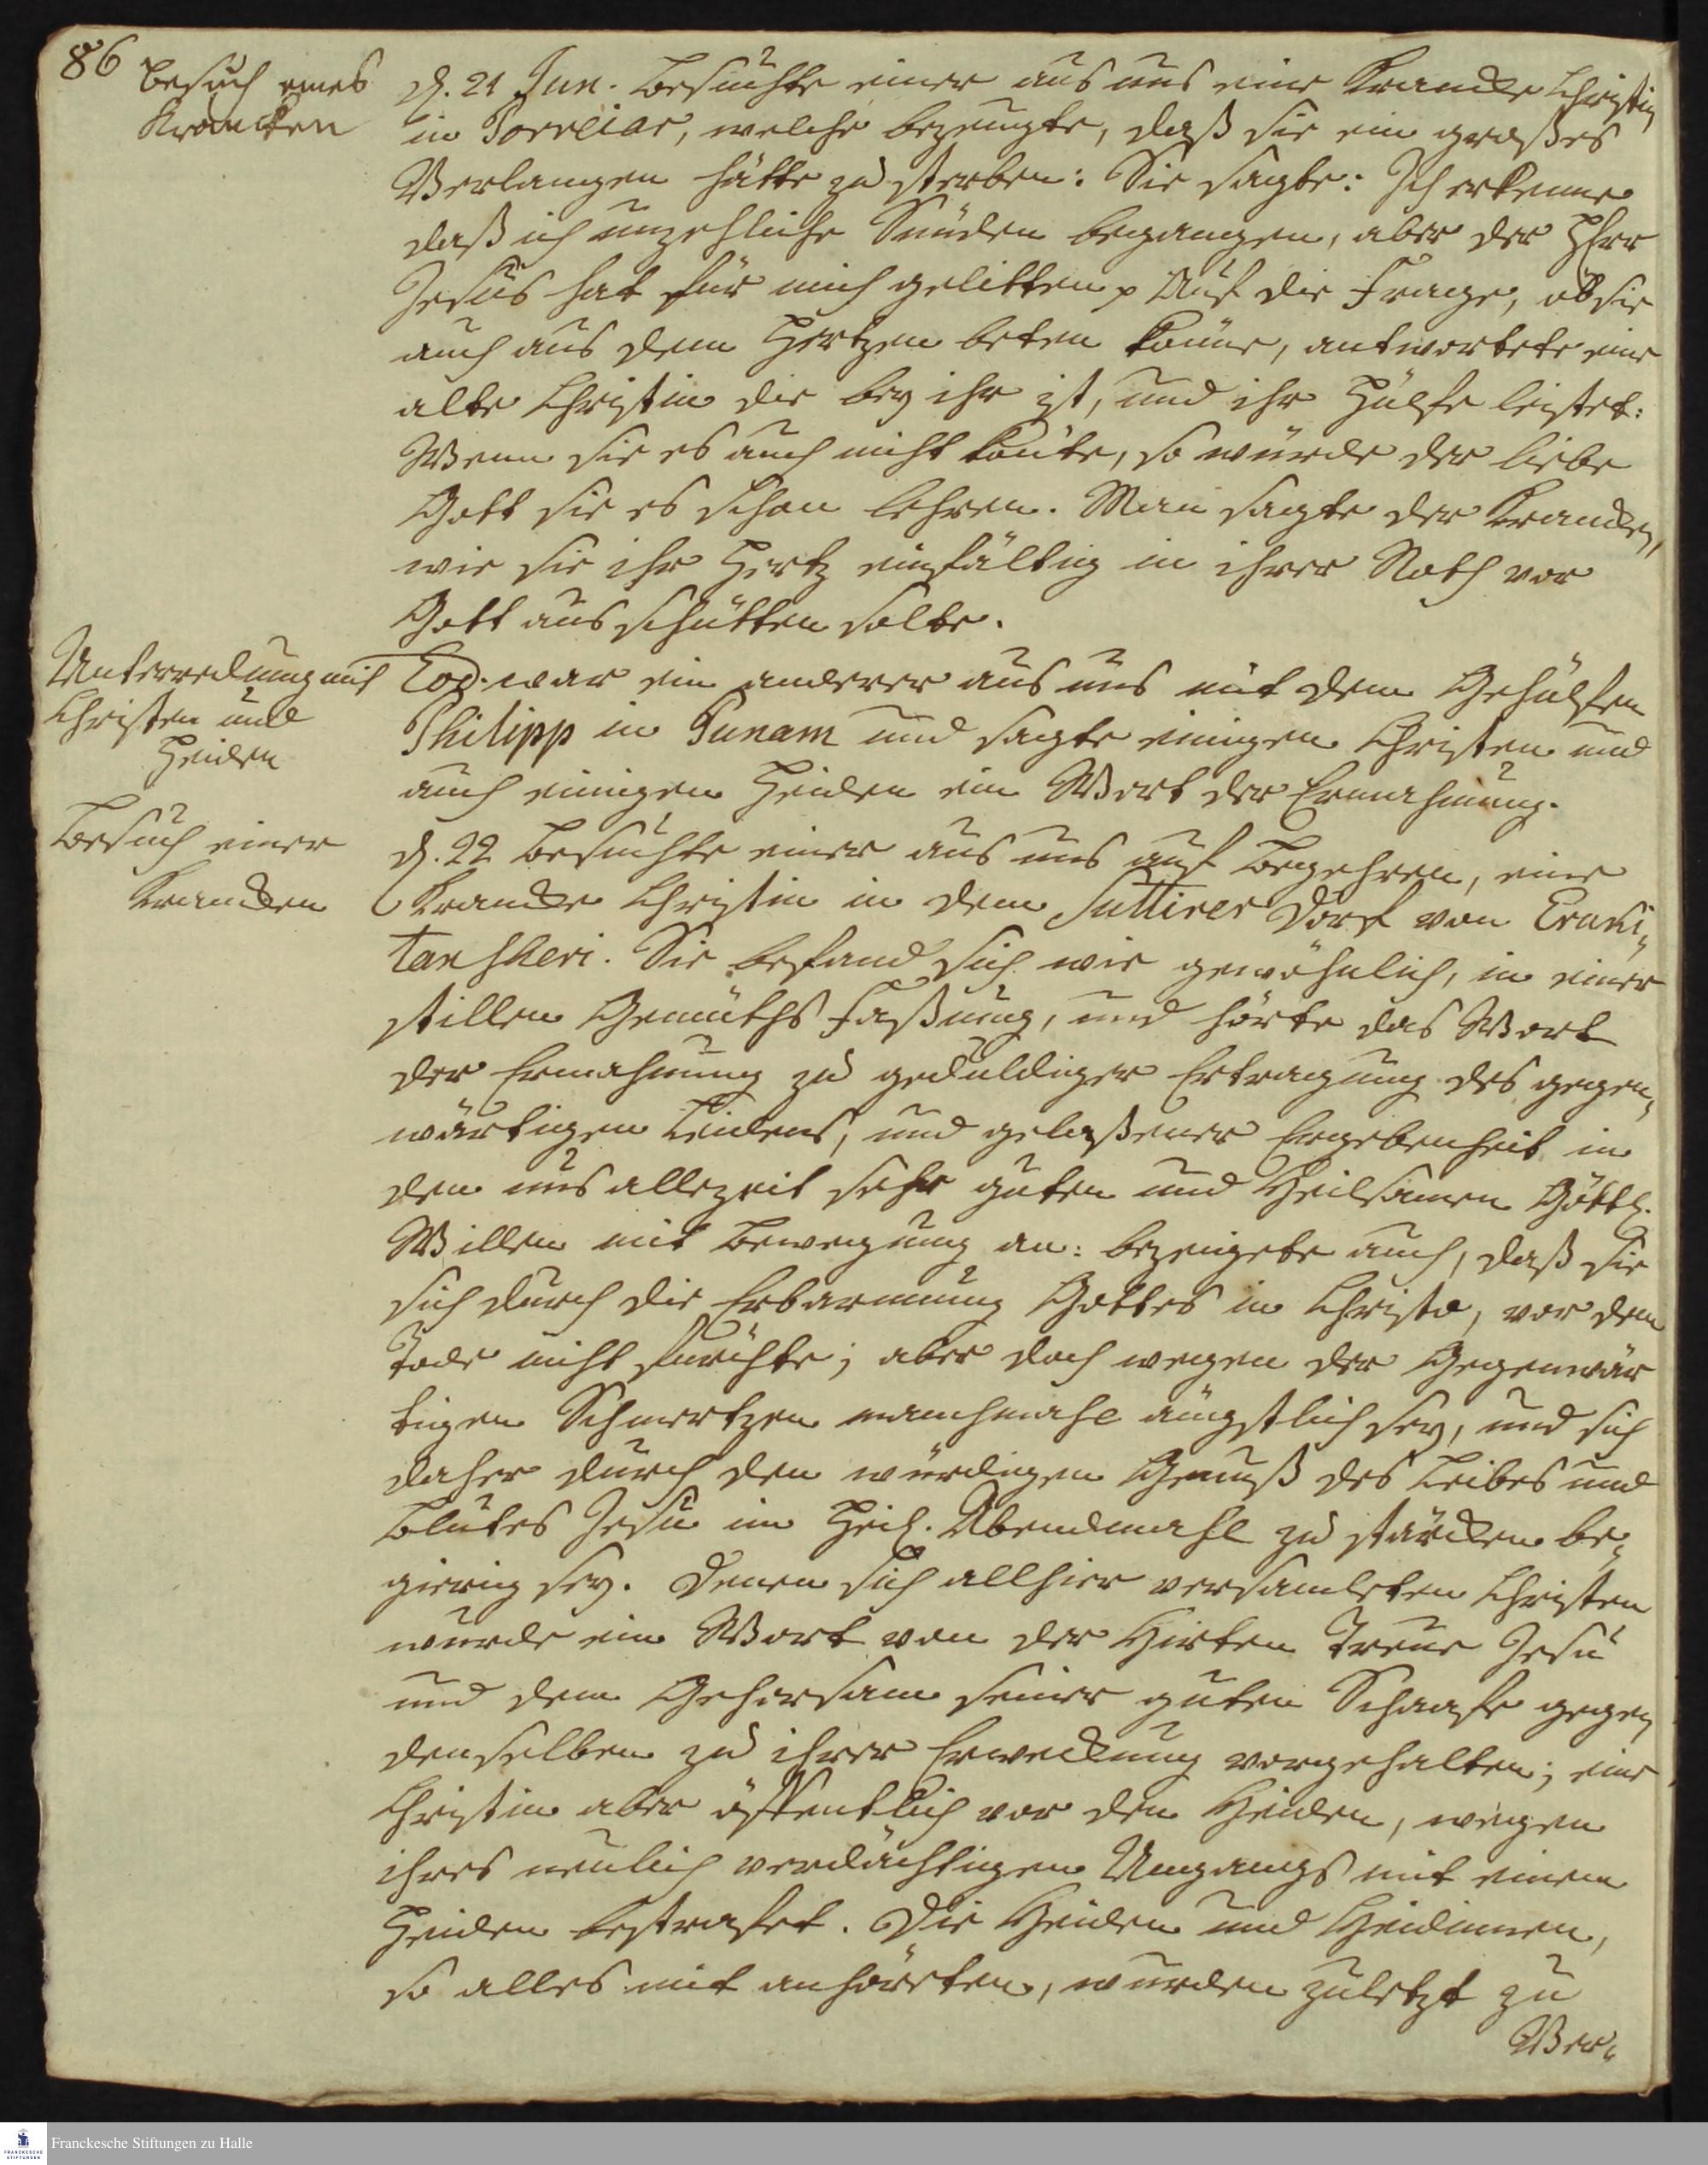 86
Besuch eines
Krancken
d. 21 Jun. Besuchte einer aus uns eine Krancke Christin
in Porreiar, welche bezeugte, daß sie ein großes
Verlangen hätte zu sterben: Sie sagte: Ich erkenne
daß ich unzehliche Sünden begangen, aber der HErr
Jesus hat für mich gelitten p Auf die Frage, ob sie
auch aus dem Hertzen beten könne, antwortete eine
alte Christin die bey ihr ist, und ihr Hülfe leistet:
Wenn sie es auch nicht könte, so würde der liebe
Gott sie es schon lehren. Man sagte der Krancken,
wie sie ihr Hertz einfältig in ihrer Noth vor
Gott ausschütten solte.
Unterredung mit
Christen und
Heiden
Eod. war ein anderer aus uns mit dem Gehülfen
Philipp in Punam und sagte einigen Christen und
auch einigen Heiden ein Wort der Ermahnung.
Besuch einer
Krancken
d. 22 Besuchte einer aus uns auf Begehren, eine
Krancke Christin in dem Suttirer Dorf von Erukü-
tanscheri. Sie befand sich wie gewöhnlich, in einer
stillen Gemüths Faßung, und hörte das Wort
der Ermahnung zu geduldiger Ertragung des gegen-
wärtigen Leidens, und gelaßener Ergebenheit in
den uns allezeit sehr guten und Heilsamen Göttl.
Willen mit Bewegung an: bezeigete auch, daß sie
sich durch die Erbarmung Gottes in Christo, vor dem
Tode nicht fürchte; aber doch wegen der Gegenwär
tigen Schmertzen manchmahl ängstlich sey, und sich
daher durch den würdigen Genuß des Leibes und
Blutes Jesu im Heil. Abendmahl zu stärcken be-
gierig sey. Denen sich allhier versamleten Christen
wurde ein Wort von der Hirten Treue Jesu
und dem Gehorsam seiner guten Schaafe gegen
denselben zu ihrer Erweckung vorgehalten; eine
Christin aber öffentlich vor den Heiden, wegen
ihres neulich verdächtigen Umgangs mit einem
Heiden bestrafet. Die Heiden und Heidinnen,
so alles mit anhöreten, wurden zuletzt zu
Ver-
FRANCKESCHE
STIFTUNGEN
Franckesche Stiftungen zu Halle